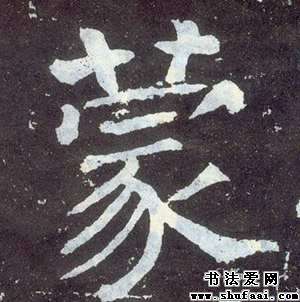 蒙
书法爱网
www.shufaai.com